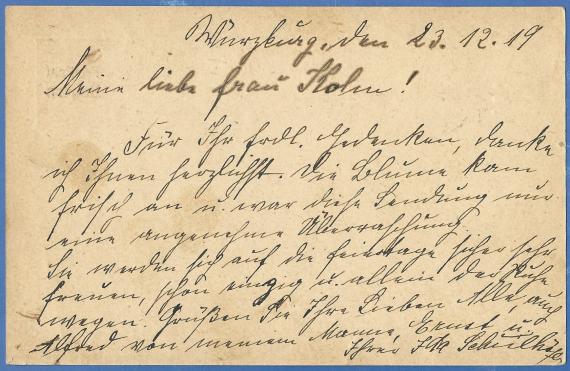 Würzburg, den 23.12.19
Meine liebe Frau Kolm!
Für Ihr frdl. Gedenken, danke
ich Ihnen herzlichst. Die Blume kam
frisch an u. war diese Sendung mir
eine angenehme Überraschung.
Sie werden sich auf die Feiertage sicher sehr
freuen, schon einzig u. allein der Ruhe
wegen. Grüßen Sie Ihre Lieben Alle, auch
Alfred von meinem Manne, Ernst u.
Ihrer